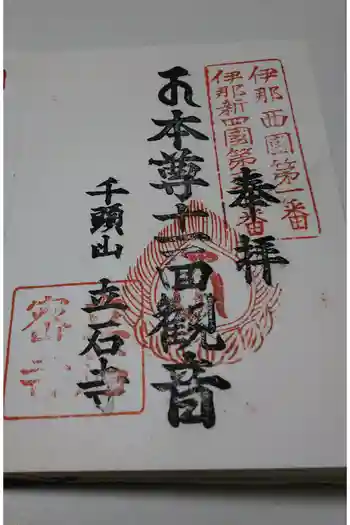 伊那西國第一番
伊那新四國第
番
奉拝
本尊十一面観音
千頭山
立石寺